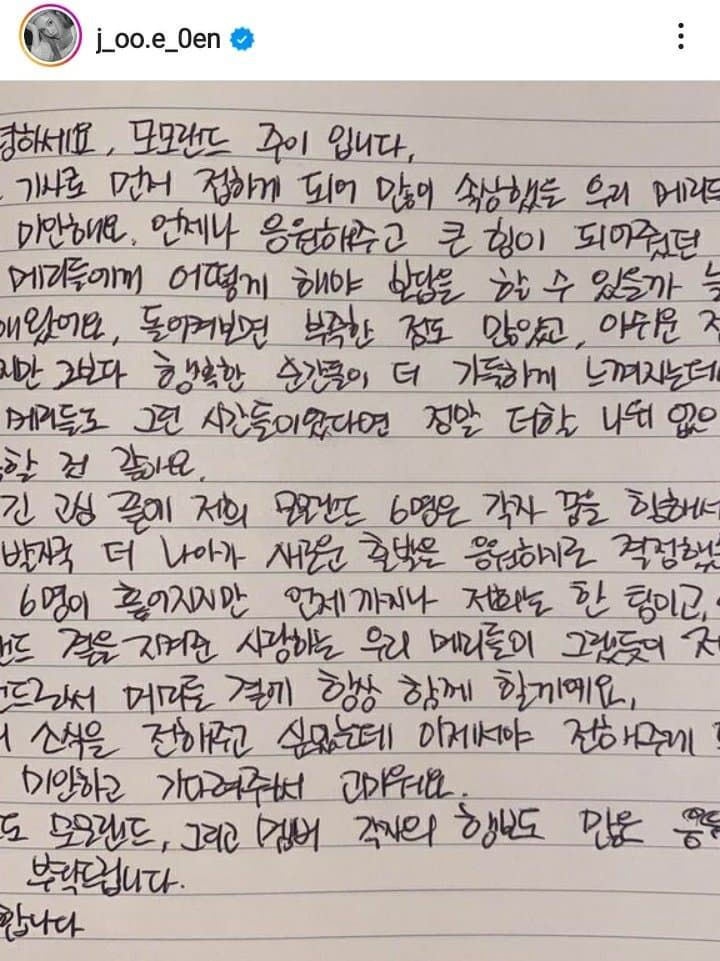 j_oo.e_0en
녕하세요, 모모랜드 주이 입니다.
기사로 먼저 접하게 되어 많이 속상했을 우리 메리들
미안해요. 언제나 응원해주고 큰 힘이 되어줬던
메리들에게 어떻게 해야 보답을 할 수 있을까 늘
해왔어요, 돌이켜보면 부족한 점도 많았고, 아쉬운
지만 그보다 행복한 순간들이 더 가득하게 느껴지는데
메리들도 그런 시간들이었다면 정말 더할 나위 없으
할 것 같아요.
긴 고심 끝에 저희 모모랜드 6명은 각자 꿈을 향해서
발자국 더 나아가 새로운 출발을 응원하기로 결정했
6명이 흩어지지만 언제까지나 저희는 한 팀이고,
랜드 곁을 지켜준 사랑하는 우리 메리들이 그랬듯이 저
랜드로서 메리들 곁에 항상 함께 할게예요.
소식을 전해주고 싶었는데 이제서야 전해주게
미안하고 기다려줘서 고마워요.
도 모모랜드, 그리고 멤버 각자의 행보도 많은 응원
부탁드립니다.
합니다